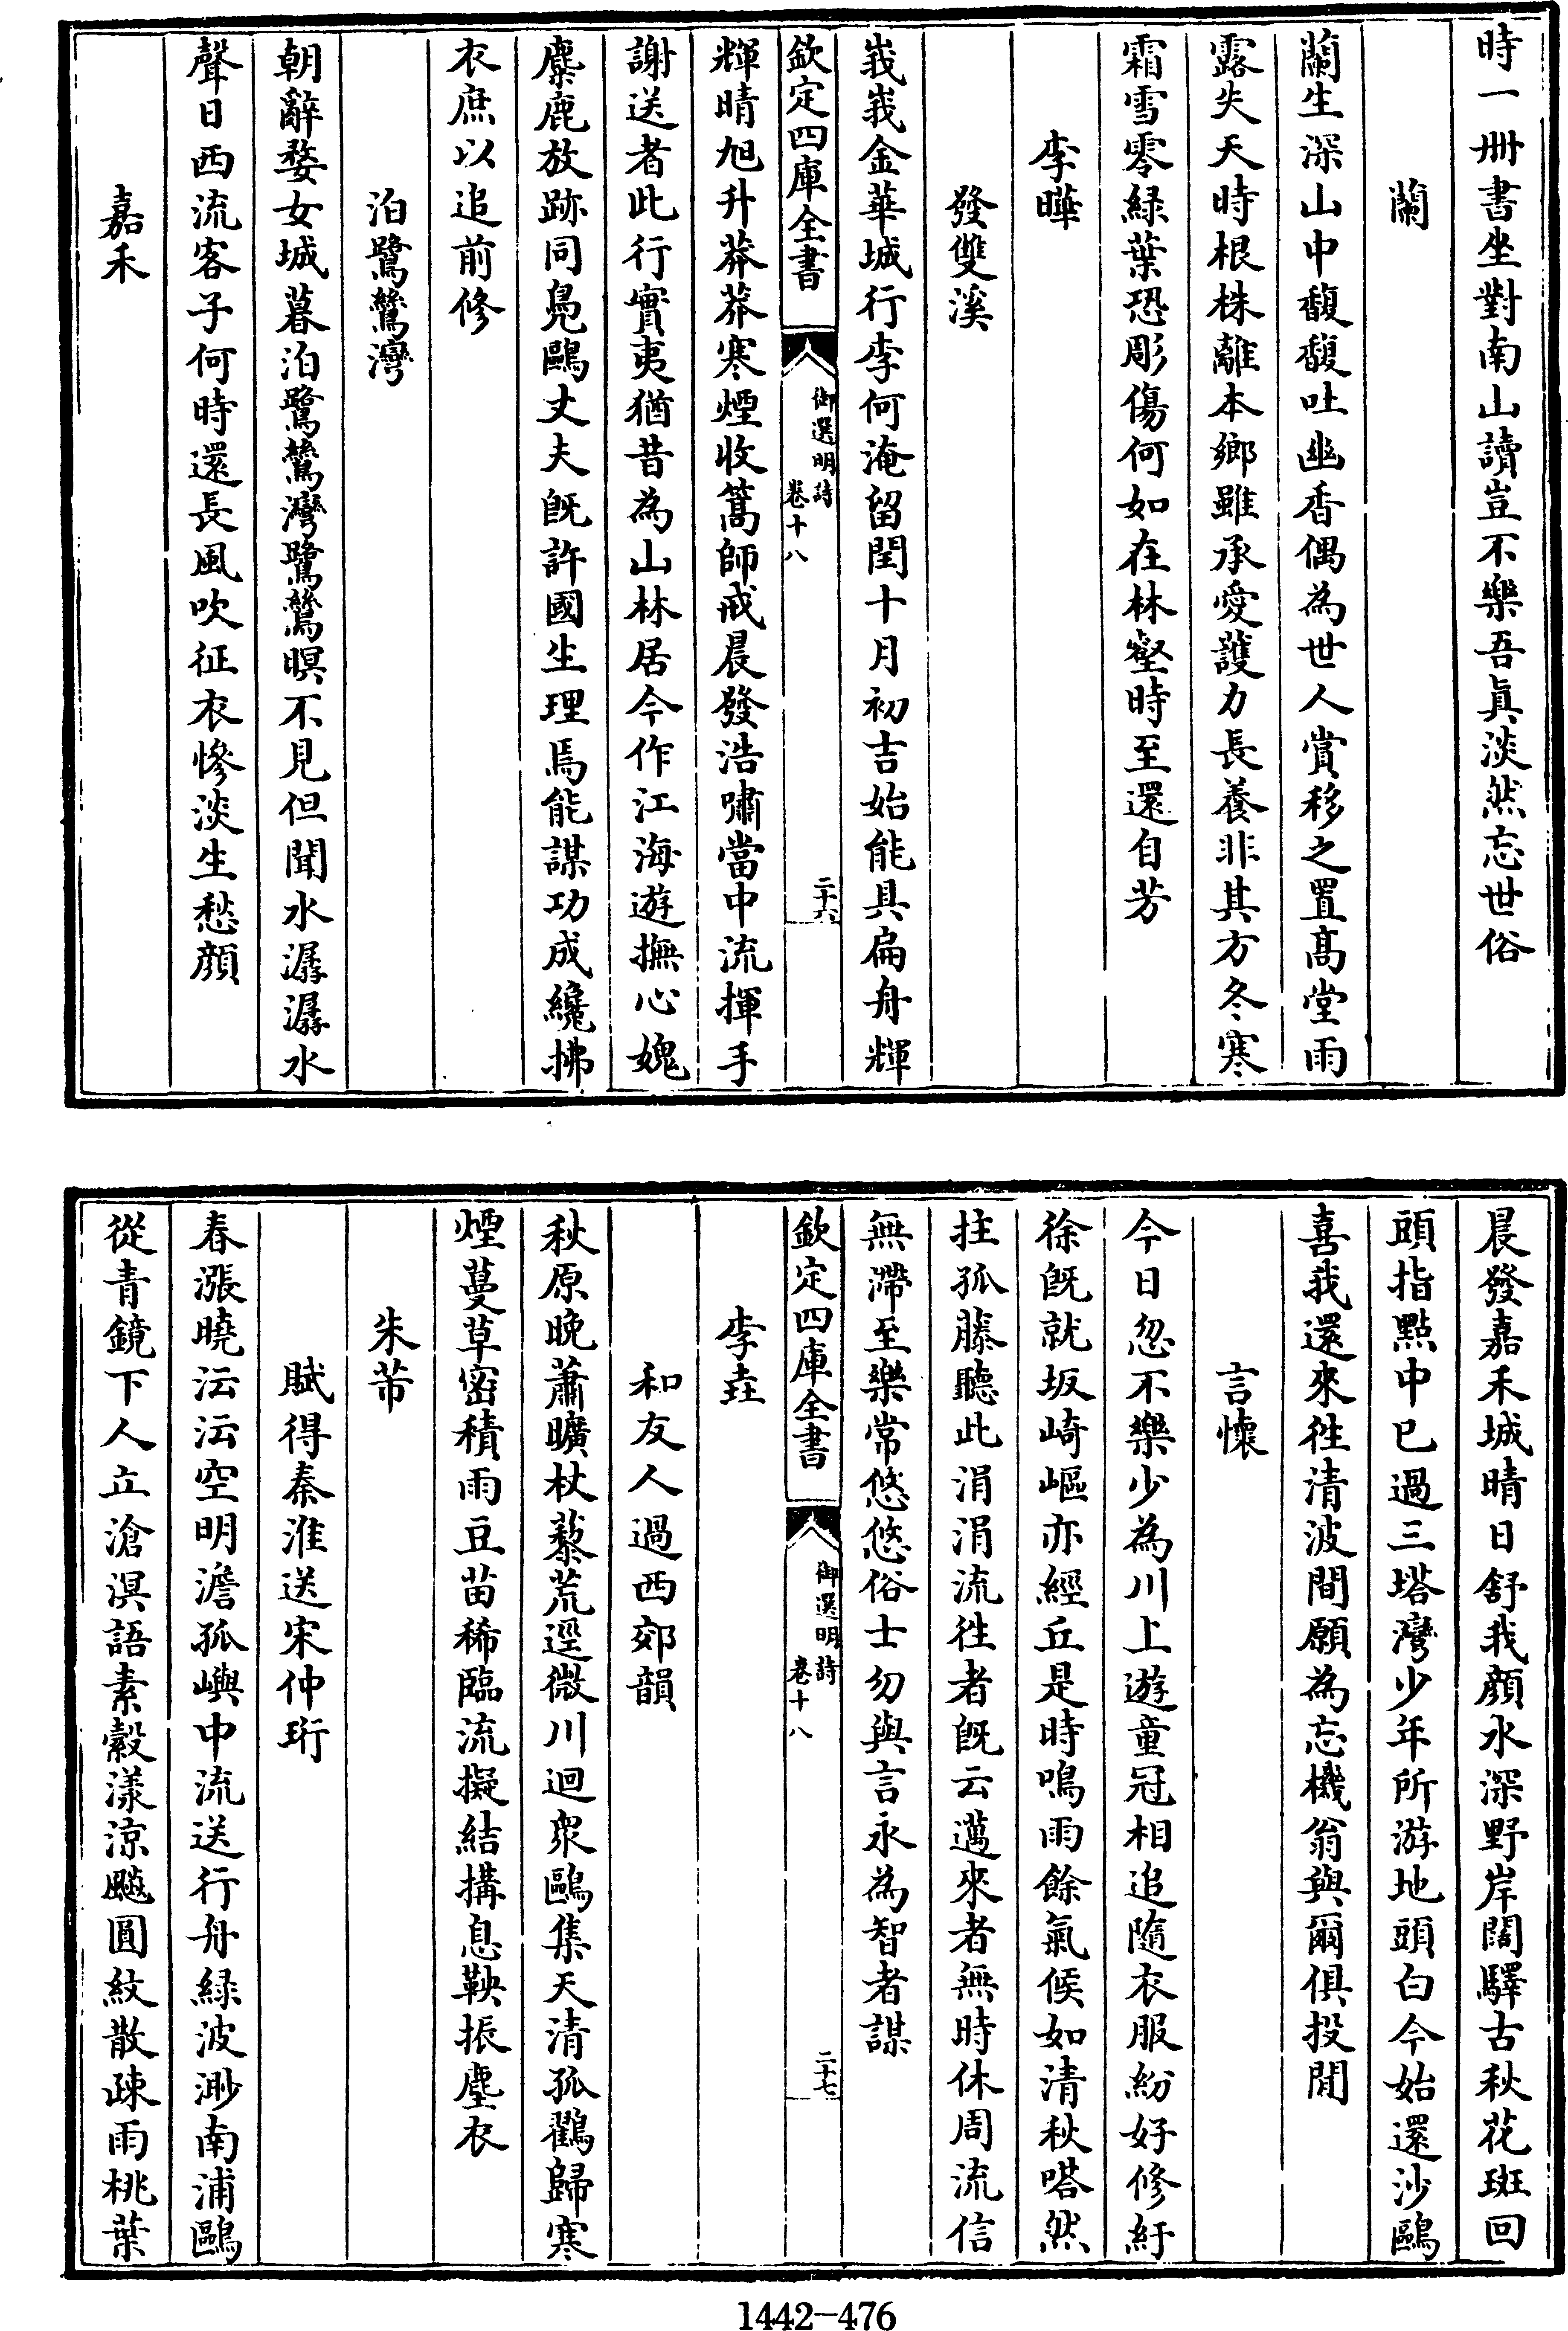 時一冊書坐對南山讀豈不樂吾眞淡然忘世俗
蘭
蘭生深山中馥馥吐幽香偶為世人賞移之置髙堂雨
露失天時根株離本鄉雖承愛護力長養非其方冬寒
霜雪零緑葉恐彫傷何如在林壑時至還自芳
李曄
發雙溪
峩峩金華城行李何淹留閏十月初吉始能具扁舟輝
欽定四庫全書
御選明詩
卷十八
二十六
輝晴旭升莽莽寒煙收篙師戒晨發浩嘯當中流揮手
謝送者此行實夷猶昔為山林居今作江海遊撫心媿
麋鹿放跡同鳬鷗丈夫旣許國生理焉能謀功成纔拂
衣庶以追前修
泊鷺鷥灣
朝辭婺女城暮泊鷺鷥灣鷺鷥暝不見但聞水潺潺水
聲日西流客子何時還長風吹征衣慘淡生愁顔
嘉禾
晨發嘉禾城晴日舒我顔水深野岸闊驛古秋花斑回
頭指點中已過三塔灣少年所游地頭白今始還沙鷗
喜我還來徃清波間願為忘機翁與爾俱投閒
言懷
今日忽不樂少為川上遊童冠相追隨衣服紛好修紆
徐旣就坂崎嶇亦經丘是時鳴雨餘氣候如清秋嗒然
拄孤藤聽此涓涓流徃者旣云邁來者無時休周流信
無滯至樂常悠悠俗士勿與言永為智者謀
欽定四庫全書
御選明詩
卷十八
二十七
李垚
和友人過西郊韻
秋原晚蕭曠杖藜荒逕微川迴衆鷗集天清孤鸛歸寒
煙蔓草密積雨豆苗稀臨流擬結構息鞅振塵衣
朱芾
賦得秦淮送宋仲珩
春漲曉沄沄空明澹孤嶼中流送行舟緑波渺南浦鷗
從青鏡下人立滄溟語素縠漾涼飈圓紋散疎雨桃葉
1442-476